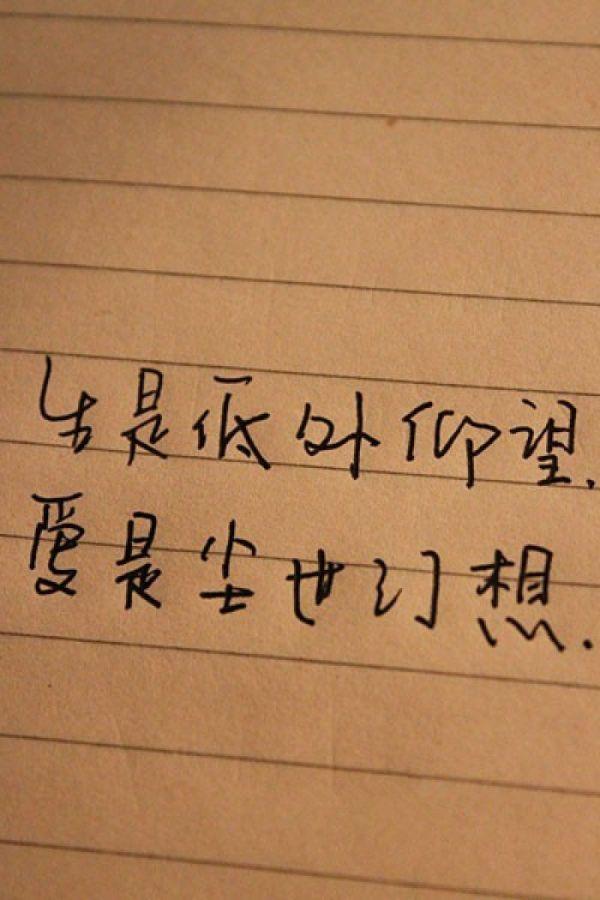 生是低处仰望.
爱是尘世幻想.